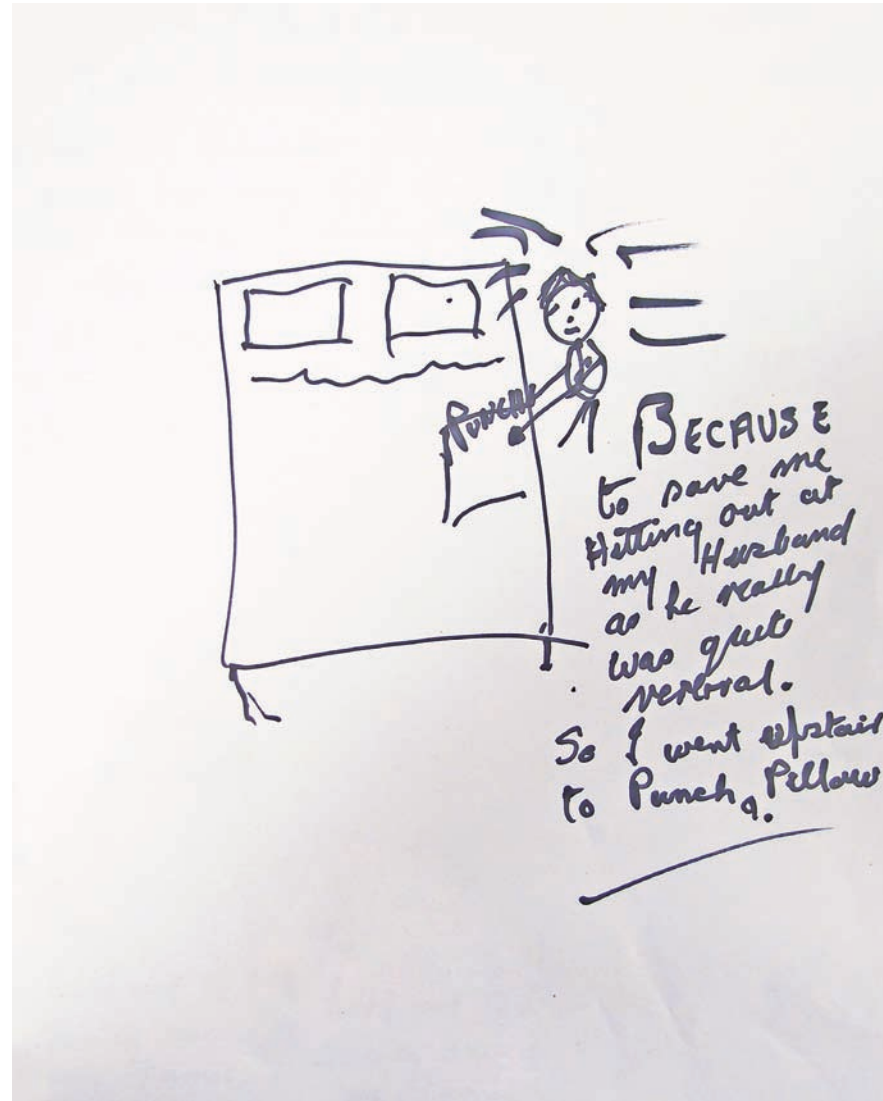 PUNCH
BECAUSE
to save me
Hitting out at
my Husband
as he really
was quite
So I went upstair
to Punch a Pillow